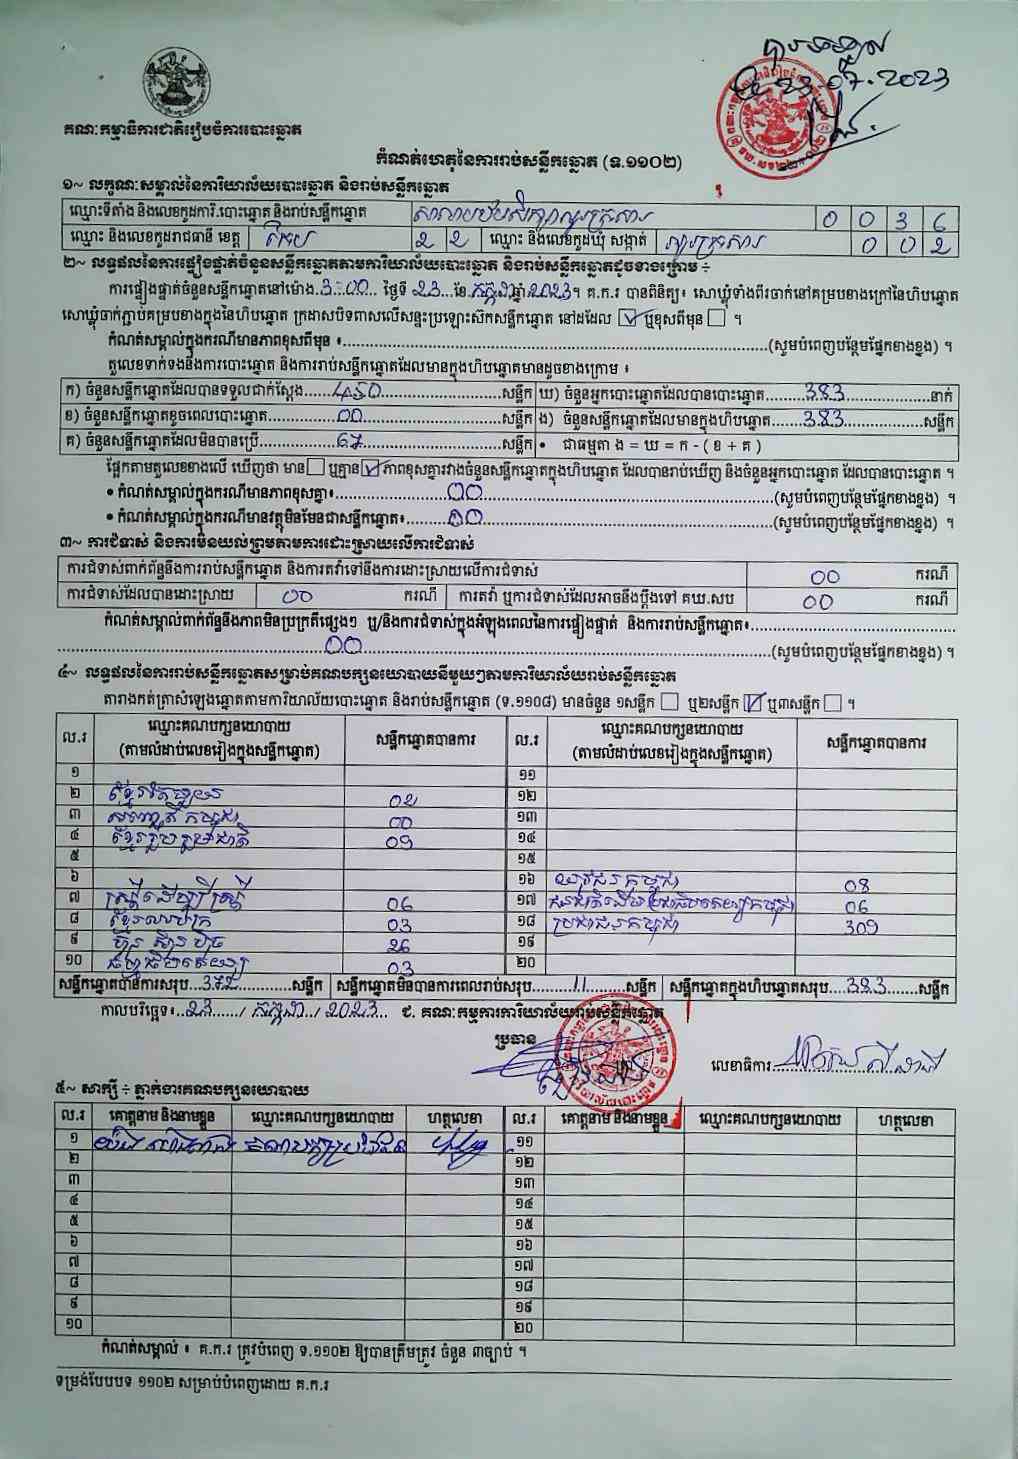 23.07.2023
គណៈកម្មាធិការជាតិរៀបចំការបោះឆ្នោត
កំណត់ហេតុនៃការរាប់សន្លឹកឆ្នោត (ទ.១១០២)
១~ លក្ខណៈសម្គាល់នៃការិយាល័យបោះឆ្នោត និងរាប់សន្លឹកឆ្នោត
ឈ្មោះទីតាំង និងលេខកូដការិ.បោះឆ្នោត និងរាប់សន្លឹកឆ្នោត 0 0 3 6
ឈ្មោះ និងលេខកូដរាជធានី ខេត្ត កែប 2 2 ឈ្មោះ និងលេខកូដឃុំ សង្កាត់ អូរក្រសារ 0 0 2
២~ លទ្ធផលនៃការផ្ទៀងផ្ទាត់ចំនួនសន្លឹកឆ្នោតតាមការិយាល័យបោះឆ្នោត និងរាប់សន្លឹកឆ្នោតដូចខាងក្រោម ÷
ការផ្ទៀងផ្ទាត់ចំនួនសន្លឹកឆ្នោតនៅម៉ោង 3:00 ថ្ងៃទី 23 ខែ កក្កដា ឆ្នាំ 2023។ គ.ក.រ បានពិនិត្យ៖ សោឃ្លុំទាំងពីរចាក់នៅគម្របខាងក្រៅនៃហិបឆ្នោត
សោឃ្លុំចាក់ភ្ជាប់គម្របខាងក្នុងនៃហិបឆ្នោត ក្រដាសបិទពាសលើសន្ទះប្រឡោះស៊កសន្លឹកឆ្នោត នៅដដែល ☑ ឬខុសពីមុន ☐ ។
កំណត់សម្គាល់ក្នុងករណីមានភាពខុសពីមុន ៖ (សូមបំពេញបន្ថែមផ្នែកខាងខ្នង) ។
តួលេខទាក់ទងនឹងការបោះឆ្នោត និងការរាប់សន្លឹកឆ្នោតដែលមានក្នុងហិបឆ្នោតមានដូចខាងក្រោម ៖
ក) ចំនួនសន្លឹកឆ្នោតដែលបានទទួលជាក់ស្តែង 450 សន្លឹក ឃ) ចំនួនអ្នកបោះឆ្នោតដែលបានបោះឆ្នោត 383 នាក់
ខ) ចំនួនសន្លឹកឆ្នោតខូចពេលបោះឆ្នោត 00 សន្លឹក ង) ចំនួនសន្លឹកឆ្នោតដែលមានក្នុងហិបឆ្នោត 383 សន្លឹក
គ) ចំនួនសន្លឹកឆ្នោតដែលមិនបានប្រើ 67 សន្លឹក • ជាធម្មតា ង = ឃ = ក - ( ខ + គ )
ផ្អែកតាមតួលេខខាងលើ ឃើញថា មាន ☐ ឬគ្មាន ☑ ភាពខុសគ្នារវាងចំនួនសន្លឹកឆ្នោតក្នុងហិបឆ្នោត ដែលបានរាប់ឃើញ និងចំនួនអ្នកបោះឆ្នោត ដែលបានបោះឆ្នោត ។
• កំណត់សម្គាល់ក្នុងករណីមានភាពខុសគ្នា៖ 00 (សូមបំពេញបន្ថែមផ្នែកខាងខ្នង) ។
• កំណត់សម្គាល់ក្នុងករណីមានវត្ថុមិនមែនជាសន្លឹកឆ្នោត៖ 00 (សូមបំពេញបន្ថែមផ្នែកខាងខ្នង) ។
៣~ ការជំទាស់ និងការមិនយល់ព្រមតាមការដោះស្រាយលើការជំទាស់
ការជំទាស់ពាក់ព័ន្ធនឹងការរាប់សន្លឹកឆ្នោត និងការតវ៉ាទៅនឹងការដោះស្រាយលើការជំទាស់ 00 ករណី
ការជំទាស់ដែលបានដោះស្រាយ 00 ករណី ការតវ៉ា ឬការជំទាស់ដែលអាចនឹងប្តឹងទៅ គឃ.សប 00 ករណី
កំណត់សម្គាល់ពាក់ព័ន្ធនឹងភាពមិនប្រក្រតីផ្សេងៗ ឬ/និងការជំទាស់ក្នុងអំឡុងពេលនៃការផ្ទៀងផ្ទាត់ និងការរាប់សន្លឹកឆ្នោត៖
00 (សូមបំពេញបន្ថែមផ្នែកខាងខ្នង) ។
៤~ លទ្ធផលនៃការរាប់សន្លឹកឆ្នោតសម្រាប់គណបក្សនយោបាយនីមួយៗតាមការិយាល័យរាប់សន្លឹកឆ្នោត
តារាងកត់ត្រាសំឡេងឆ្នោតតាមការិយាល័យបោះឆ្នោត និងរាប់សន្លឹកឆ្នោត (ទ.១១០៨) មានចំនួន ១សន្លឹក ☐ ឬ២សន្លឹក ☑ ឬ៣សន្លឹក ☐ ។
ល.រ ឈ្មោះគណបក្សនយោបាយ (តាមលំដាប់លេខរៀងក្នុងសន្លឹកឆ្នោត) សន្លឹកឆ្នោតបានការ ល.រ ឈ្មោះគណបក្សនយោបាយ (តាមលំដាប់លេខរៀងក្នុងសន្លឹកឆ្នោត) សន្លឹកឆ្នោតបានការ
១ ១១
២ ខ្មែរតែមួយ 02 ១២
៣ 00 ១៣
៤ ខ្មែររួបរួមជាតិ 09 ១៤
៥ ១៥
៦ ១៦ យុវជនកម្ពុជា 08
៧ ស្ត្រីដើម្បីស្ត្រី 06 ១៧ 06
៨ 03 ១៨ ប្រជាជនកម្ពុជា 309
៩ ហ៊្វុនស៊ិនប៉ិច 26 ១៩
១០ 03 ២០
សន្លឹកឆ្នោតបានការសរុប 372 សន្លឹក សន្លឹកឆ្នោតមិនបានការពេលរាប់សរុប 11 សន្លឹក សន្លឹកឆ្នោតក្នុងហិបឆ្នោតសរុប 383 សន្លឹក
កាលបរិច្ឆេទ៖ 23 / កក្កដា / 2023 ជ. គណៈកម្មការការិយាល័យរាប់សន្លឹកឆ្នោត
ប្រធាន
លេខាធិការ
៥~ សាក្សី ÷ ភ្នាក់ងារគណបក្សនយោបាយ
ល.រ គោត្តនាម និងនាមខ្លួន ឈ្មោះគណបក្សនយោបាយ ហត្ថលេខា ល.រ គោត្តនាម និងនាមខ្លួន ឈ្មោះគណបក្សនយោបាយ ហត្ថលេខា
១ ១១
២ ១២
៣ ១៣
៤ ១៤
៥ ១៥
៦ ១៦
៧ ១៧
៨ ១៨
៩ ១៩
១០ ២០
កំណត់សម្គាល់ ៖ គ.ក.រ ត្រូវបំពេញ ទ.១១០២ ឱ្យបានត្រឹមត្រូវ ចំនួន ៣ច្បាប់ ។
ទម្រង់បែបបទ ១១០២ សម្រាប់បំពេញដោយ គ.ក.រ